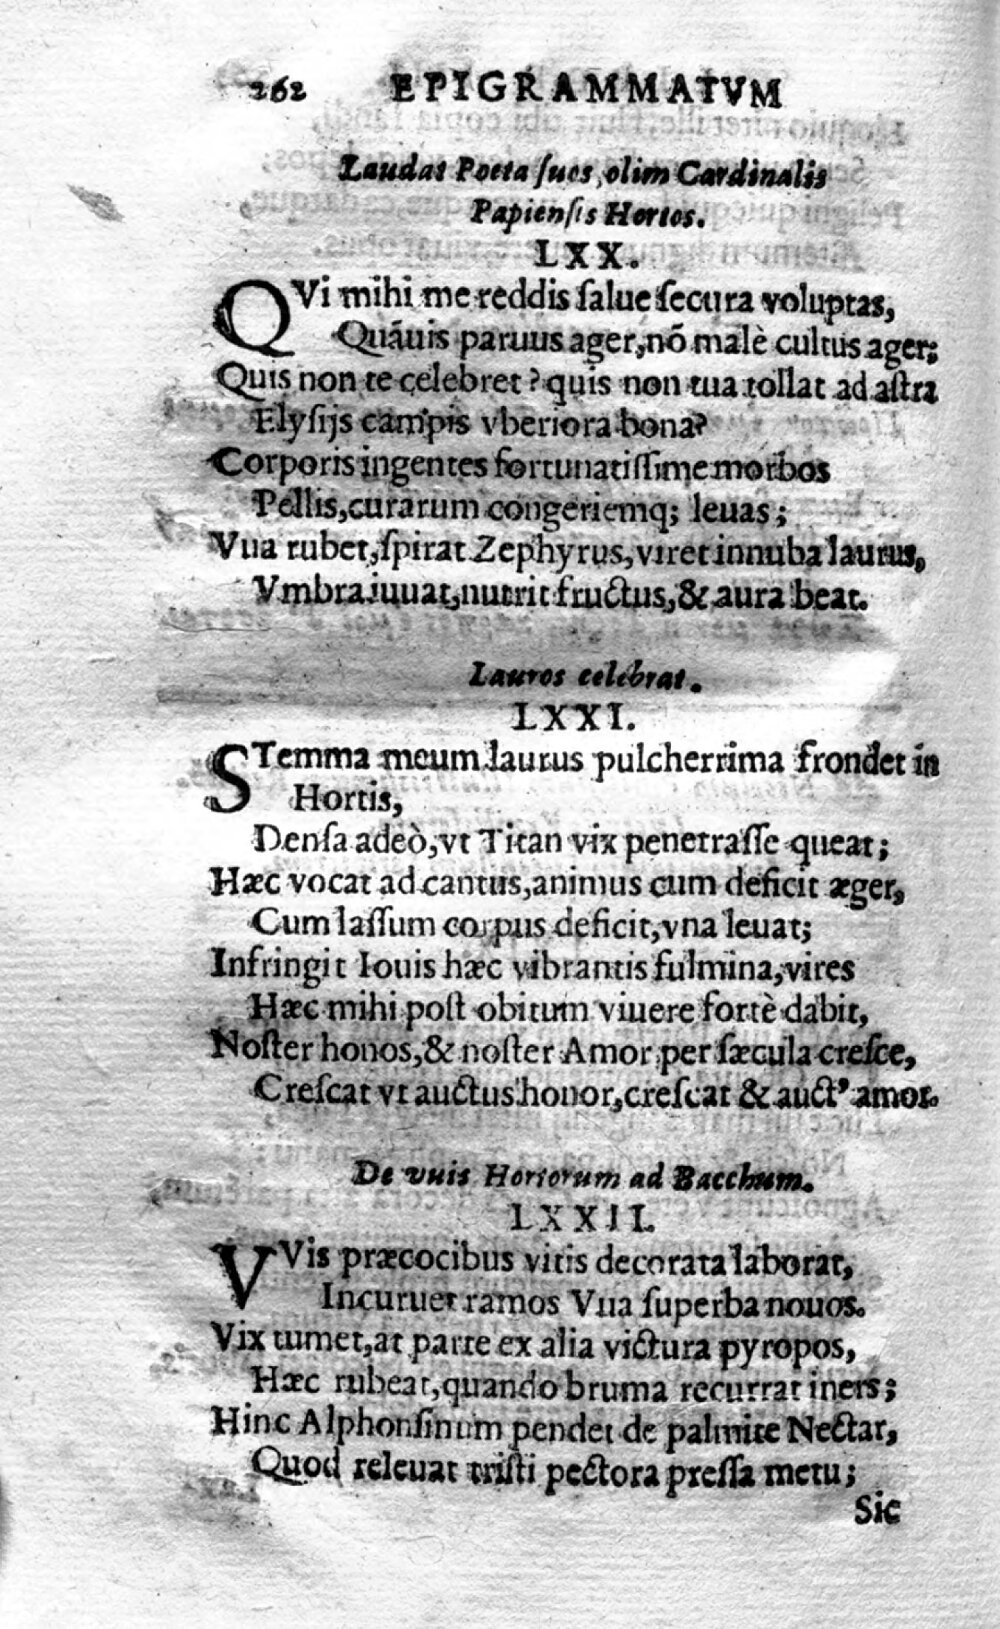 262 EPIGRAMMATVM
Laudat Poeta ſuos, olim Cardinalis
Papienſis Hortos.
LXX.
QVi mihi me reddis ſalue ſecura voluptas,
Quãuis paruus ager, nõ malè cultus ager;
Quis non te celebret? quis non tua tollat ad aſtra
Elyſijs campis vberiora bona?
Corporis ingentes fortunatiſſime morbos
Pellis, curarum congeriemq; leuas;
Vua rubet, ſpirat Zephyrus, viret innuba laurus,
Vmbra iuuat, nutrit fructus, & aura beat.
Lauros celebrat.
LXXI.
STemma meum laurus pulcherrima frondet in
Hortis,
Denſa adeò, vt Titan vix penetraſſe queat;
Hæc vocat ad cantus, animus cum deficit æger,
Cum laſſum corpus deficit, vna leuat;
Infringit Iouis hæc vibrantis fulmina, vires
Hæc mihi poſt obitum viuere fortè dabit,
Noſter honos, & noſter Amor per ſæcula creſce,
Creſcat vt auctus honor, creſcat & auct' amor.
De vuis Hortorum ad Bacchum.
LXXII.
VVis præcocibus vitis decorata laborat,
Incuruet ramos Vua ſuperba nouos.
Vix tumet, at parte ex alia victura pyropos,
Hæc rubeat, quando bruma recurrat iners;
Hinc Alphonſinum pendet de palmite Nectar,
Quod releuat triſti pectora preſſa metu;
Sic